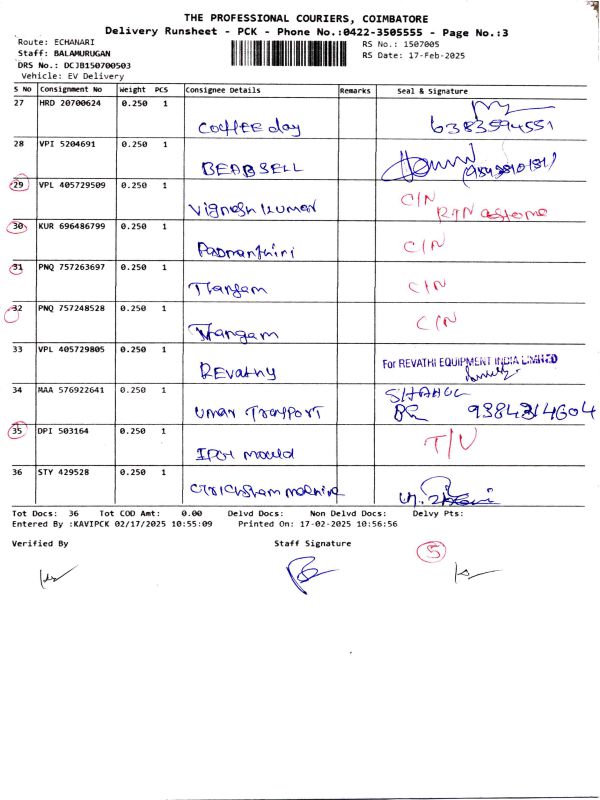 THE PROFESSIONAL COURIERS, COIMBATORE
Delivery Runsheet - PCK - Phone No.:0422-3505555 - Page No.:3
Route: ECHANARI
RS No.: 1507005
Staff: BALAMURUGAN
RS Date: 17-Feb-2025
DRS No.: DCJB150700503
Vehicle: EV Delivery
S No Consignment No Weight PCS Consignee Details Remarks Seal & Signature
27 HRD 20700624 0.250 1 Coffee day 6383594551
28 VPI 5204691 0.250 1
29 VPL 405729509 0.250 1 Vignesh kumar C/N
30 KUR 696486799 0.250 1 C/N
31 PNQ 757263697 0.250 1 C/N
32 PNQ 757248528 0.250 1 Thangam C/N
33 VPL 405729805 0.250 1 REvathy For REVATHI EQUIPMENT INDIA LIMITED
34 MAA 576922641 0.250 1 Umar Transport 9384314604
35 DPI 503164 0.250 1 mould T/V
36 STY 429528 0.250 1
Tot Docs: 36 Tot COD Amt: 0.00 Delvd Docs: Non Delvd Docs: Delvy Pts:
Entered By :KAVIPCK 02/17/2025 10:55:09 Printed On: 17-02-2025 10:56:56
Verified By Staff Signature
5